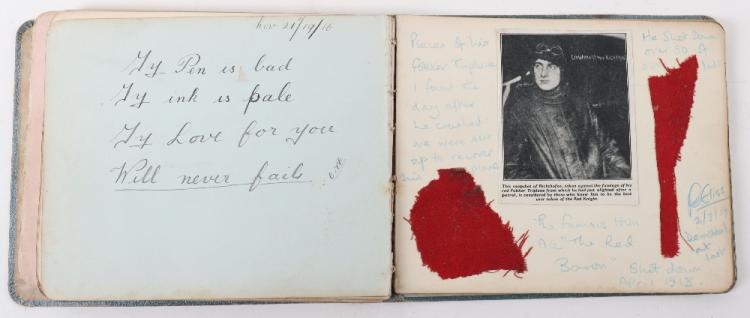 Nov 21/19/16
My Pen is bad
My ink is pale
My Love for you
Will never fails
Pieces of his
Fokker Triplane
I found the
day after
he crashed
we were sent
up to recover
his plane
This snapshot of Richthofen, taken against the fuselage of his
red Fokker Triplane from which he had just alighted after a
patrol, is considered by those who knew him to be the best
ever taken of the Red Knight.
He Shot Down
over 80 of
The famous Hun
Ace "The Red
Baron"
Shot down
April 1918.
2/7/19
Demobbed
at
last